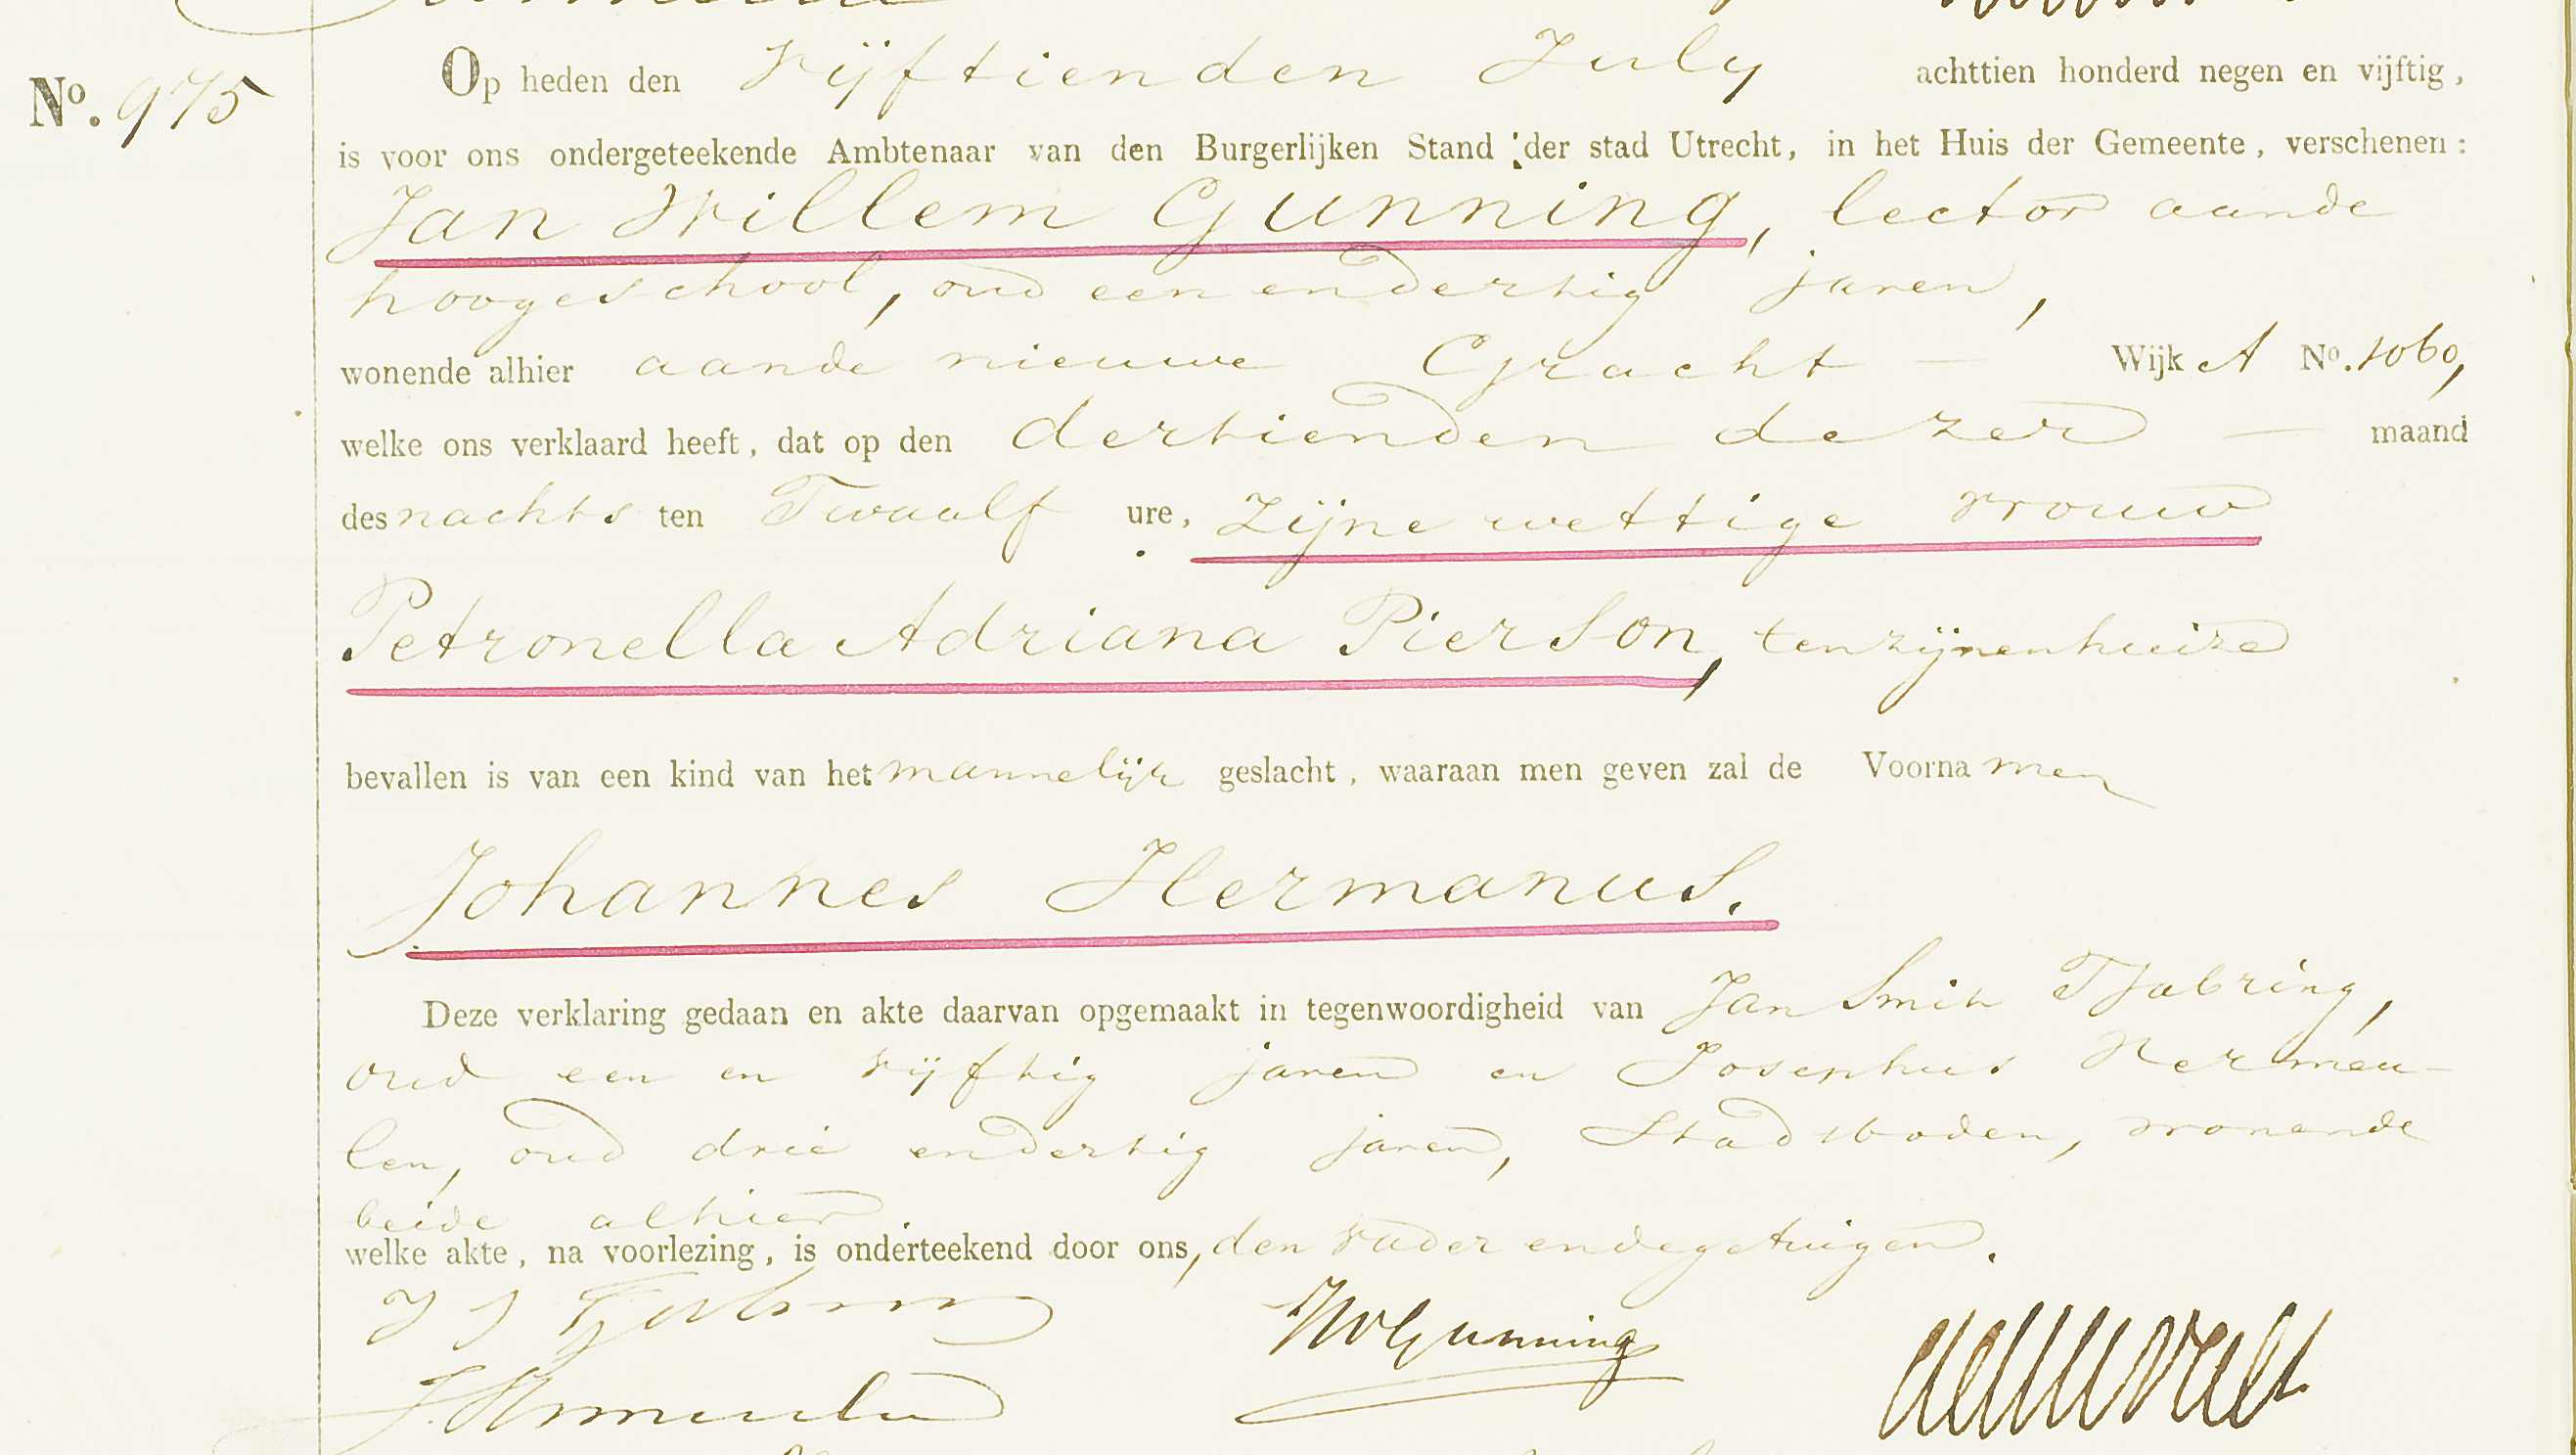 No. 975
Op heden den vijftienden July achttien honderd negen en vijftig,
is voor ons ondergeteekende Ambtenaar van den Burgerlijken Stand der stad Utrecht, in het Huis der Gemeente, verschenen:
Jan Willem Gunning, lector aande
hoogeschool, oud een en dertig jaren,
wonende alhier aande nieuwe Gracht — Wijk A No. 1060,
welke ons verklaard heeft, dat op den dertienden dezer — maand
des nachts ten Twaalf ure, zijne wettige vrouw
Petronella Adriana Pierson, ten zijnen huize
bevallen is van een kind van het mannelijk geslacht, waaraan men geven zal de Voornamen
Johannes Hermanus.
Deze verklaring gedaan en akte daarvan opgemaakt in tegenwoordigheid van Jan Smit Tjabring,
oud een en vijftig jaren en Josephus Vermeu-
len, oud drie en dertig jaren, Stadsboden, wonende
beide alhier
welke akte, na voorlezing, is onderteekend door ons, den vader en de getuigen.
JWGunning